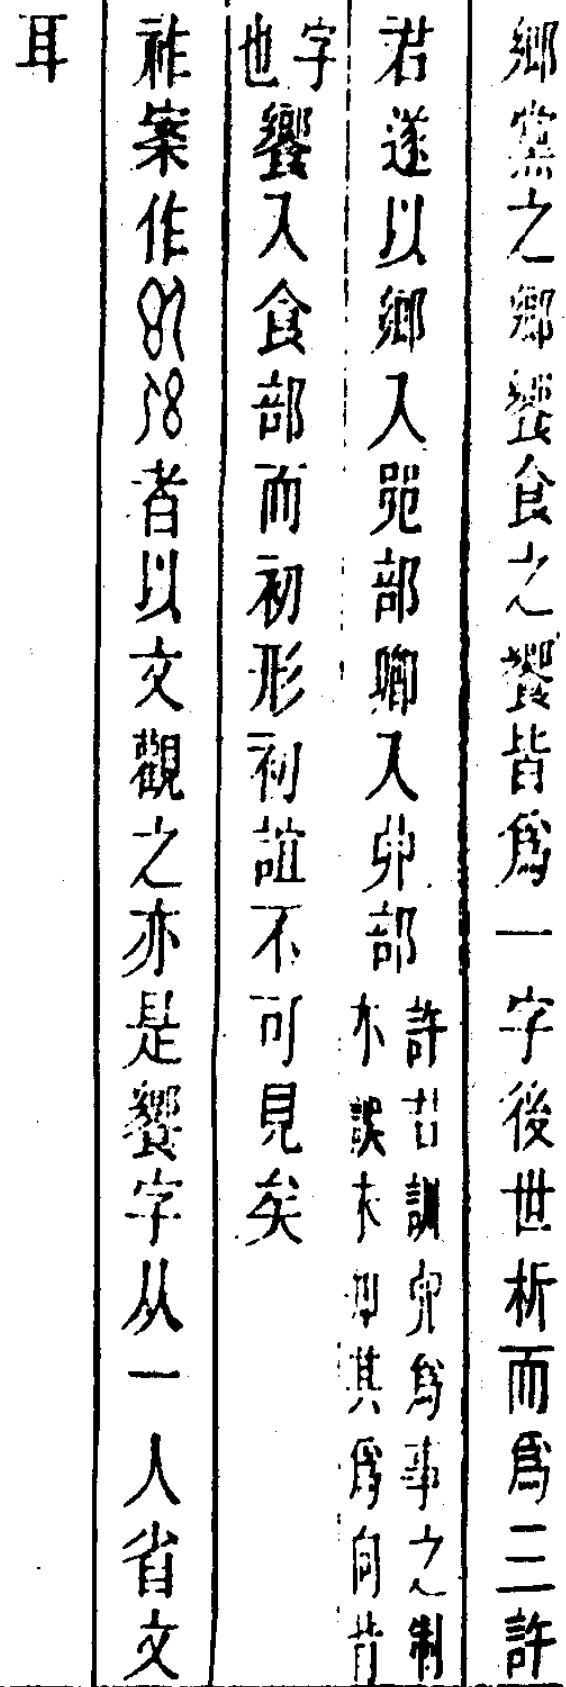 鄉黨之鄉饗食之饗皆爲一字後世析而爲三許
君遂以鄉入𨛜部卿入卯部
許君訓卯爲事之制
亦誤未知其爲向背
字也
饗入食部而初形初誼不可見矣
祚案作者以文觀之亦是饗字从一人省文
耳